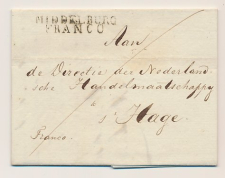 MIDDELBURG
FRANCO
Aan
de Directie der Nederland-
sche Handelmaatschappy
a
s' Hage.
Franco.